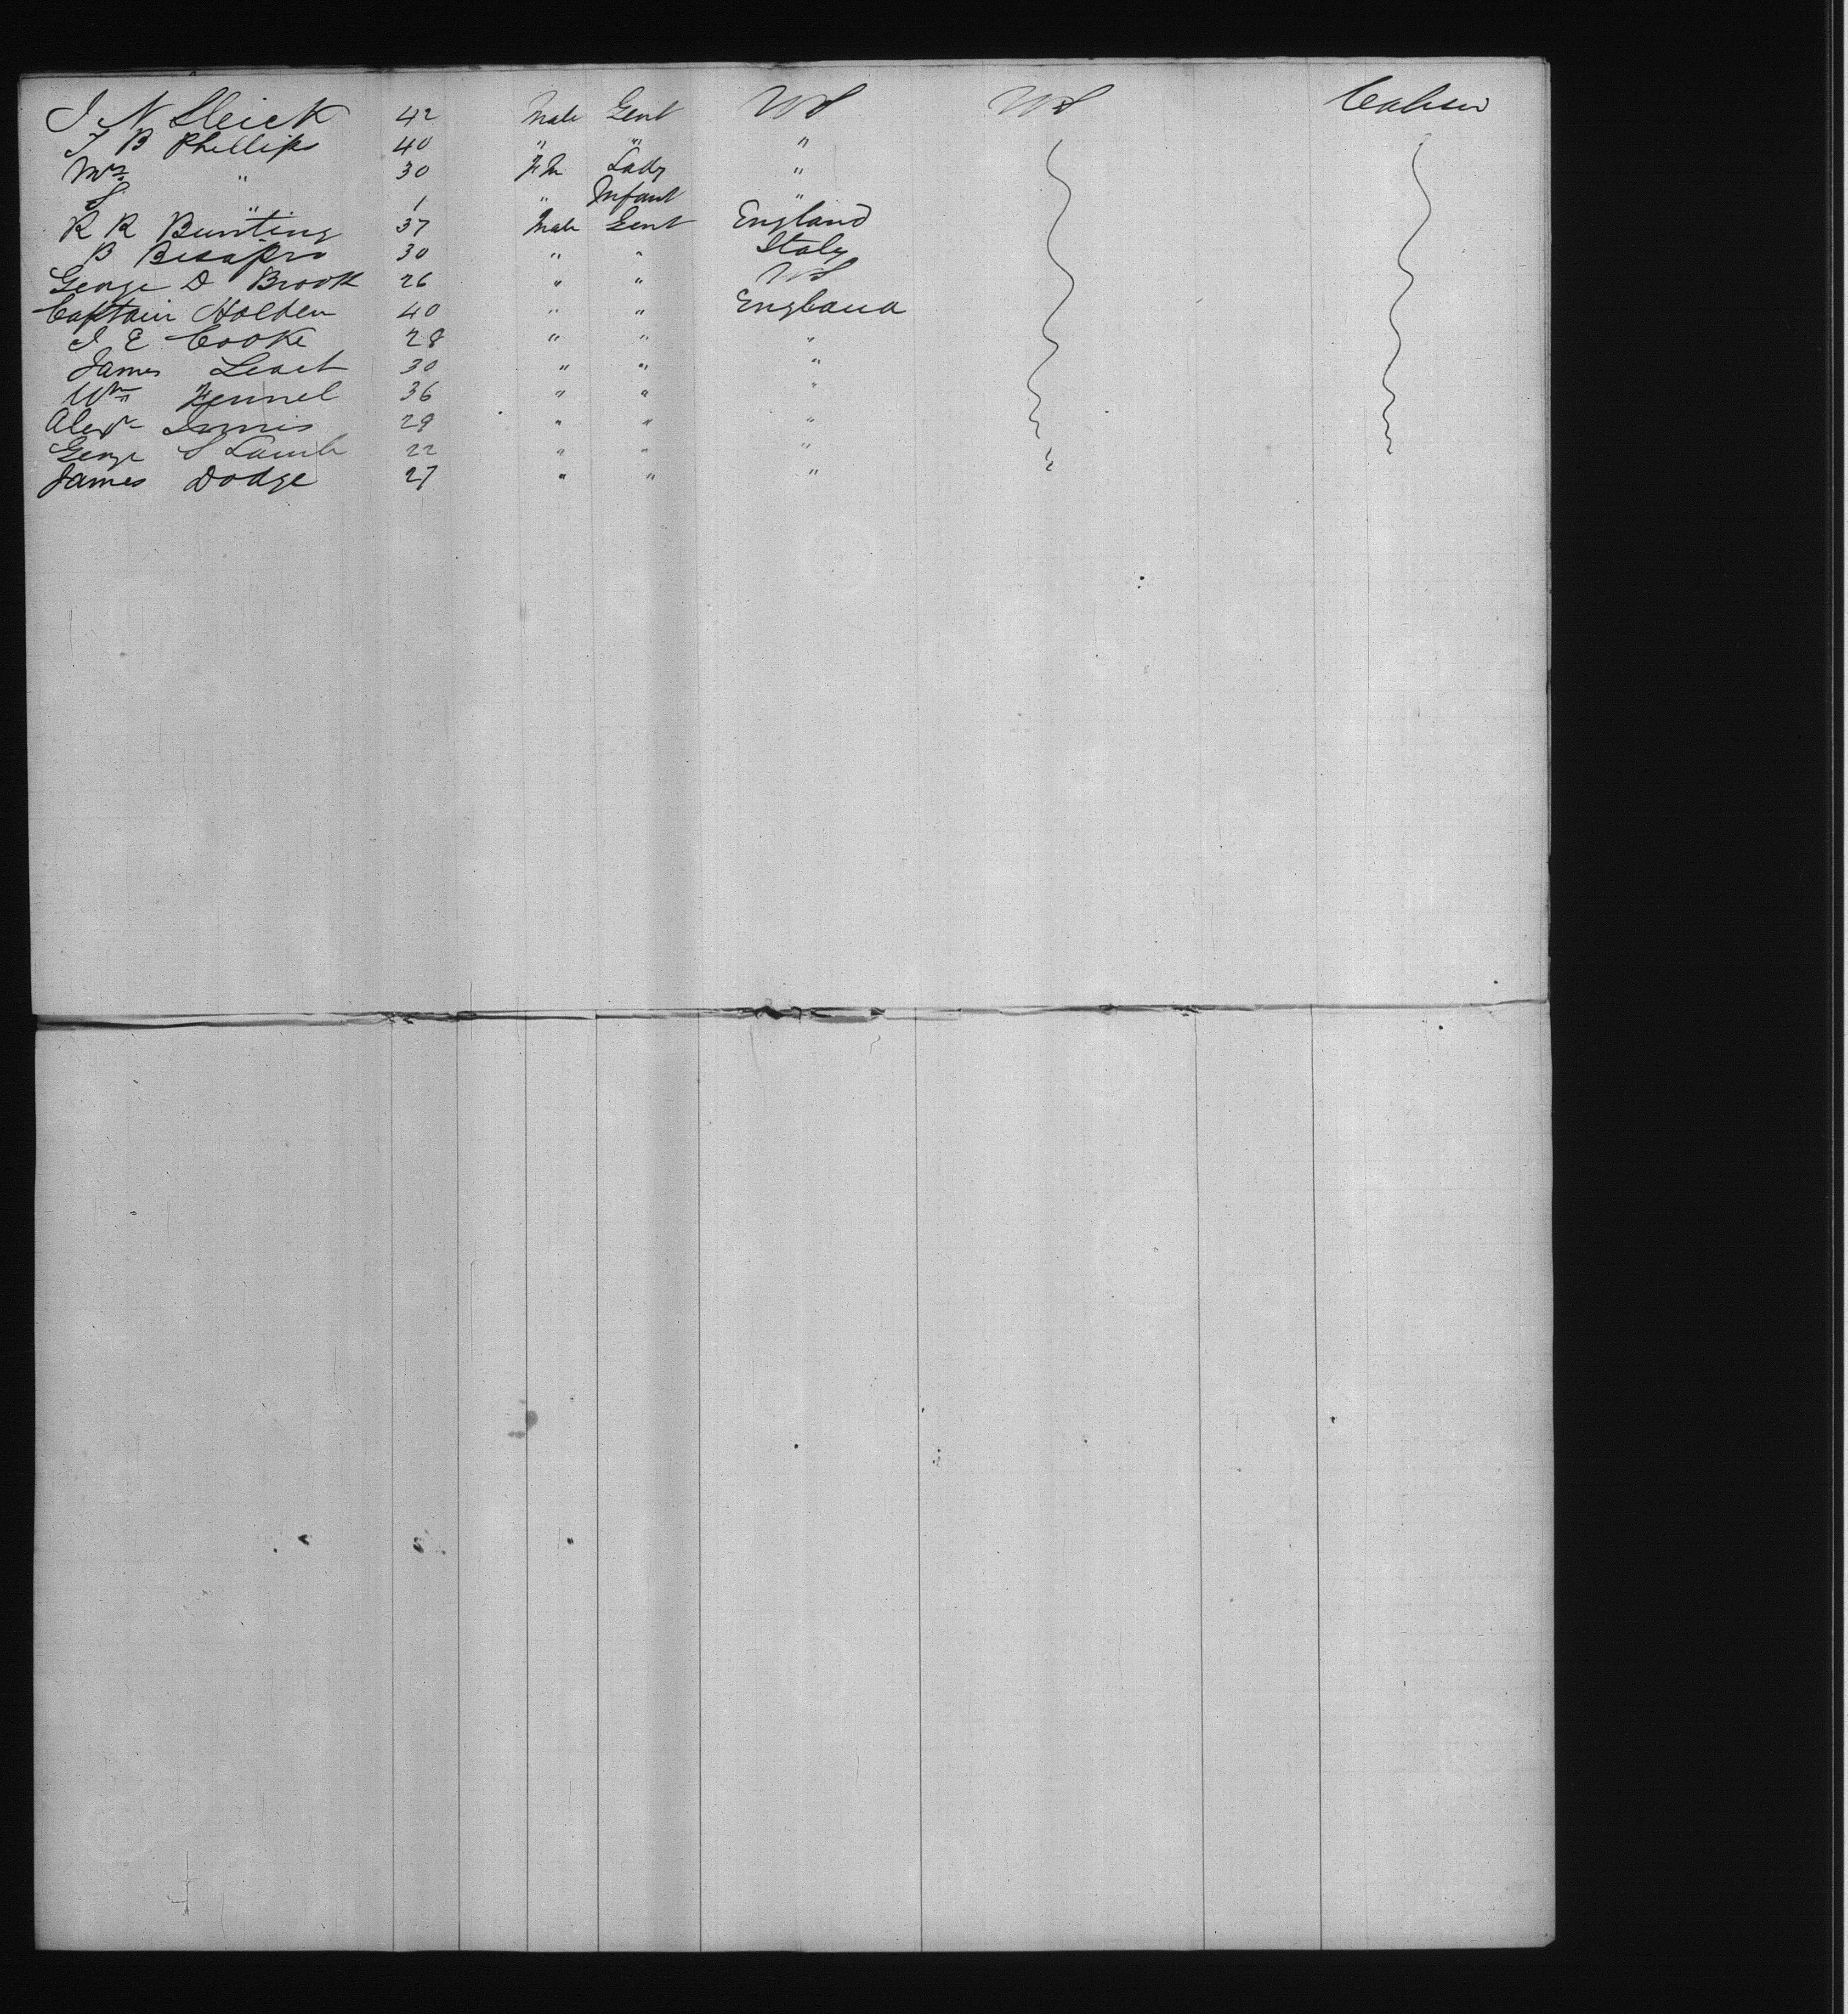 J N Sleick 42 Male Gent US US Cabin
J B Phillips 40 " " "
Mrs " 30 Fm Lady "
S " 1 " Infant "
R R Bunting 37 Male Gent England
B 30 " " Italy
George D Brook 26 " " US
Captain Holden 40 " " England
J E Cooke 28 " " "
James 30 " " "
Wm Fennel 36 " " "
Alexr Innis 29 " " "
George S Lamb 22 " " "
James Dodge 27 " " "